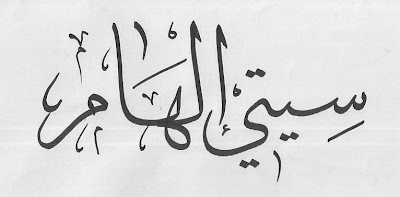 سِيتي إلهام